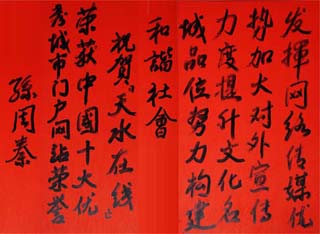 发挥网络传媒优
势加大对外宣传
力度提升文化名
城品位努力构建
和谐社會
祝贺天水在线
荣获中國十大优
秀城市门户网站荣誉
孫周秦